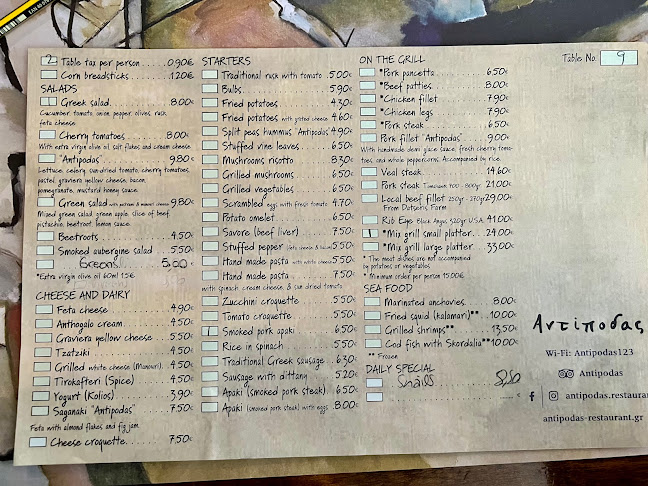 2 Table tax per person 0.90€
Corn breadsticks 1.20€
SALADS
1 Greek salad 8.00€
Cucumber, tomato, onion, pepper, olives, rusk, feta cheese
Cherry tomatoes 8.00€
With extra virgin olive oil, salt flakes and cream cheese
"Antipodas" 9.80€
Lettuce, celery, sun-dried tomato, cherry tomatoes,
pastel, graviera yellow cheese, bacon,
pomegranate, mustard honey sauce
Green salad 9.80€
Mixed green salad, green apple, slice of beef,
pistachio, beetroot, lemon sauce
Beetroots 4.50€
Smoked aubergine salad 5.50€
Greens 5,00€
*Extra virgin olive oil 60ml 1.5€
CHEESE AND DAIRY
Feta cheese 4.90€
Anthogalo cream 4.50€
Graviera yellow cheese 5.50€
Tzatziki 4.50€
Grilled white cheese (Manouri) 4.50€
Tirokafteri (Spice) 4.50€
Yogurt (Kolios) 3.90€
Saganaki "Antipodas" 7.50€
Feta with almond flakes and fig jam
Cheese croquette 7.50€
STARTERS
Traditional rusk with tomato 5.00€
Bulbs 5.90€
Fried potatoes 4.30€
Fried potatoes with grated cheese 4.60€
Split peas hummus "Antipodas" 4.90€
Stuffed vine leaves 6.50€
Mushrooms risotto 8.30€
Grilled mushrooms 6.50€
Grilled vegetables 6.50€
Scrambled eggs with fresh tomato 4.70€
Potato omelet 6.50€
Savore (beef liver) 7.50€
Stuffed pepper 5.50€
Hand made pasta with white cheese 5.50€
Hand made pasta 7.50€
with spinach, cream cheese & sun dried tomato
Zucchini croquette 5.50€
Tomato croquette 5.50€
1 Smoked pork apaki 6.50€
Rice in spinach 5.50€
Traditional Greek sausage 6.30€
Sausage with dittany 5.20€
Apaki (smoked pork steak) 6.50€
Apaki (smoked pork steak) with eggs 8.00€
ON THE GRILL
*Pork pancetta 6.50€
*Beef patties 8.00€
*Chicken fillet 7.90€
*Chicken legs 7.90€
*Pork steak 6.50€
Pork fillet "Antipodas" 9.00€
With handmade demi glace sauce, fresh cherry toma-
toes, and whole peppercorns. Accompanied by rice.
Veal steak 14.60€
Pork steak Tomahawk 700-800gr 21.00€
Local beef fillet 250gr-270gr 29.00€
From Patsaris Farm
Rib Eye Black Angus 320gr U.S.A. 41.00€
1 *Mix grill small platter 24.00€
*Mix grill large platter 33.00€
* The meat dishes are not accompanied
by potatoes or vegetables
* Minimum order per person 15.00€
SEA FOOD
Marinated anchovies 8.00€
Fried squid (kalamari)** 10.00€
Grilled shrimps** 13.50€
Cod fish with Skordalia** 10.00€
** Frozen
DAILY SPECIAL
Snails
€
Table No. 9
Αντίποδας
Wi-Fi: Antipodas123
Antipodas
antipodas.restaura
antipodas-restaurant.gr